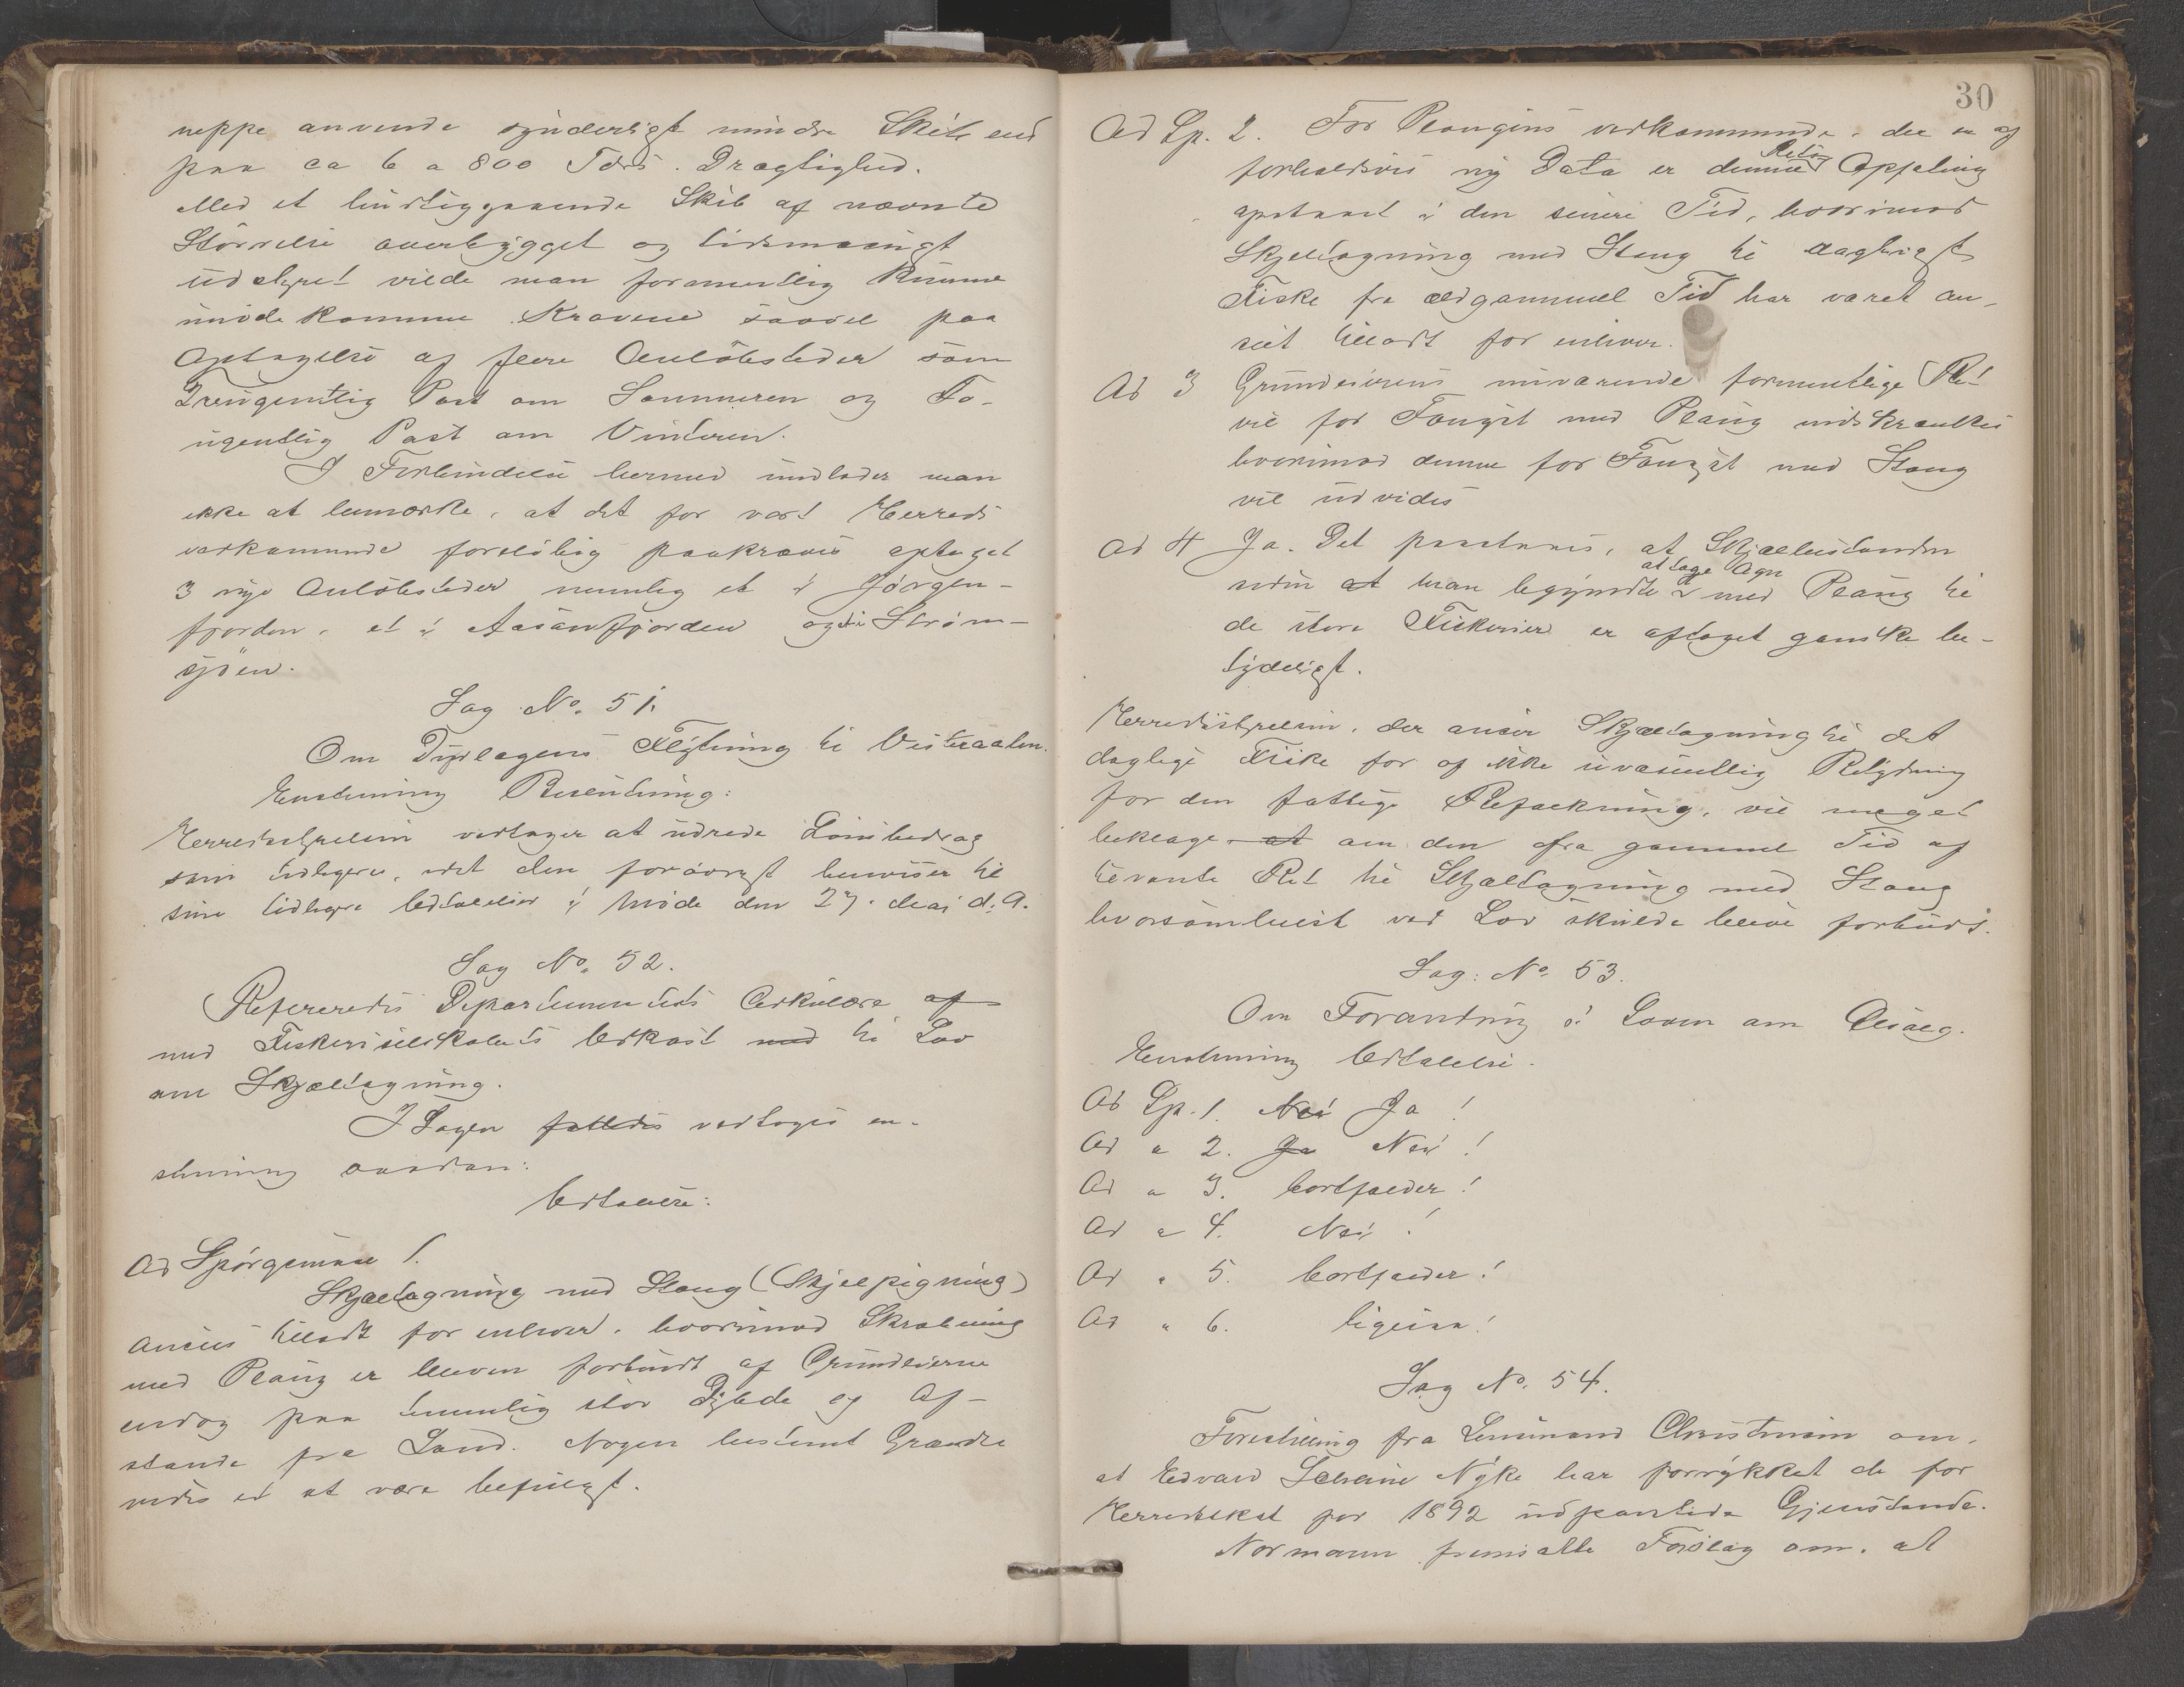 neppe anvende synderligt mindre Skib end
paa ca 6 a 800 Tdrs. Drægtighed.
Med et hurtiggaaende Skib af nævnte
Størrelse overbygget og tidsmæsigt
udstyret vilde man formentlig kunne
imødekomme Kravene saavel paa
Optagelse af flere Anløbsteder som
Treugentlig Post om Sommeren og To-
ugentlig Post om Vinteren.
I Forbindelse hermed undlader man
ikke at bemærke, at det for vort Herreds
vedkommende foreløbig paakræves optaget
3 nye Anløbsteder nemlig et i Jörgen-
fjorden, et i Aasanfjorden og i Ström-
sjöen.
Sag No. 51.
Om Dyrlægens Flytning til Vesteraalen.
Enstemmig Beslutning:
Herredsstyrelsen vedtager at udrede Lønsbidrag
som tidligere, idet den forøvrigt henviser til
sine tidligere Udtalelser i Møde den 27. Mai d. A.
Sag No. 52.
Refereredes Departementets Cirkulære af
med Fiskeriselskabets Udkast med til Lov
om Skjæltagning.
I Sagen faldtes vedtoges en-
stemmig saadan:
Udtalelse:
Ad Spørgsmaal 1.
Skjæltagning med Stang (Skjelpigning)
ansees tilladt for enhver, hvorimod Skrabning
med Plaug er bleven forbudt af Grundeierne
endog paa temmelig stor Dybde og Af-
stande fra Land. Nogen bestemt Grændse
vides ei at være befulgt.
30
Ad Sp. 2. For Plougens vedkommende, der er af
forholdsvis ny Data er denne Rets Opfatning
opstaaet i den senere Tid, hvorimod
Skjæltagning med Stang til dagligt
Fiske fra ældgammel Tid har været an-
seet tilladt for enhver.
Ad 3 Grundeierens nuværende formentlige Ret
vil for Fangst med Plaug indskrænkes
hvorimod denne for Fangst med Stang
vil udvides
Ad 4 Ja. Det paastaaes, at Skjælbestanden
siden at man begyndte at tage Agn med Plaug til
de store Fiskerier er aftaget ganske be-
tydeligt.
Herredsstyrelsen, der anser Skjæltagning til det
daglige Fiske for af ikke uvæsentlig Betydning
for den fattige Befolkning, vil meget
beklage at om den fra gammel Tid af
hævdede Ret til Skjæltagning med Stang
hvorsomhelst ved Lov skulde blive forbudt.
Sag: No 53.
Om Forandring i Loven om Ølsalg.
Enstemmig Udtalelse.
Ad Sp. 1. Nei Ja!
Ad " 2. Ja Nei!
Ad " 3. bortfalder!
Ad " 4. Nei!
Ad " 5. bortfalder!
Ad " 6. ligesaa!
Sag No. 54.
Forestilling fra Lensmand Christensen om,
at Edvard Nyke har forrykket de for
Herredsskat for 1892 udpantede Gjenstande.
Normann fremsatte Forslag om, at